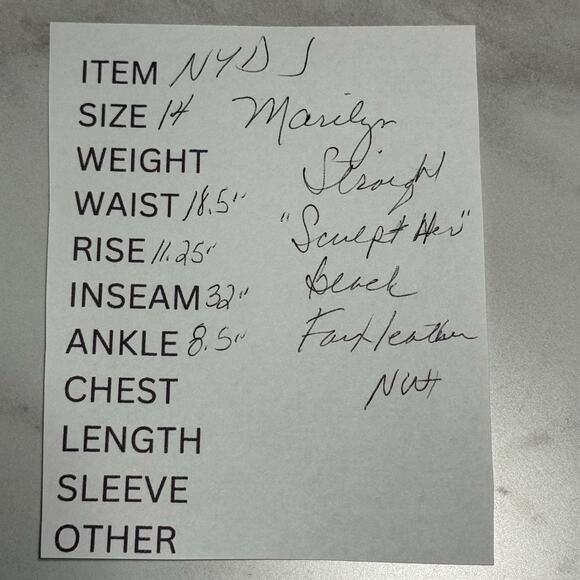 ITEM NYDJ
SIZE 14 Marilyn
WEIGHT Straight
WAIST 18.5"
"Sculpt Her"
RISE 11.25"
INSEAM 32" black
ANKLE 8.5" Faux leather
CHEST NWT
LENGTH
SLEEVE
OTHER